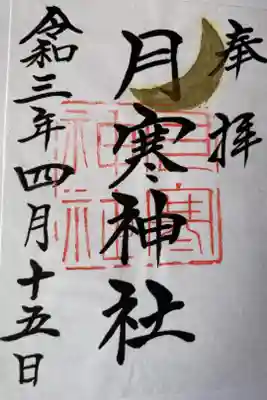 奉拝
月寒神社
令和三年四月十五日
月寒
神社